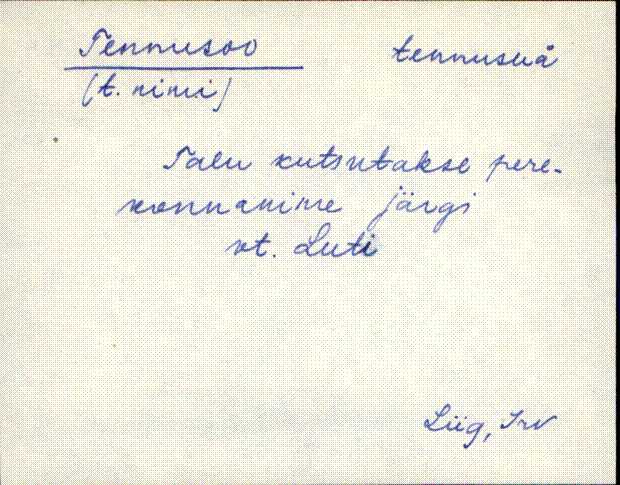 Tennusoo tennusuå
(t. nimi)
Talu kutsutakse pere-
konnanime järgi
vt. Luti
Liig, Irv